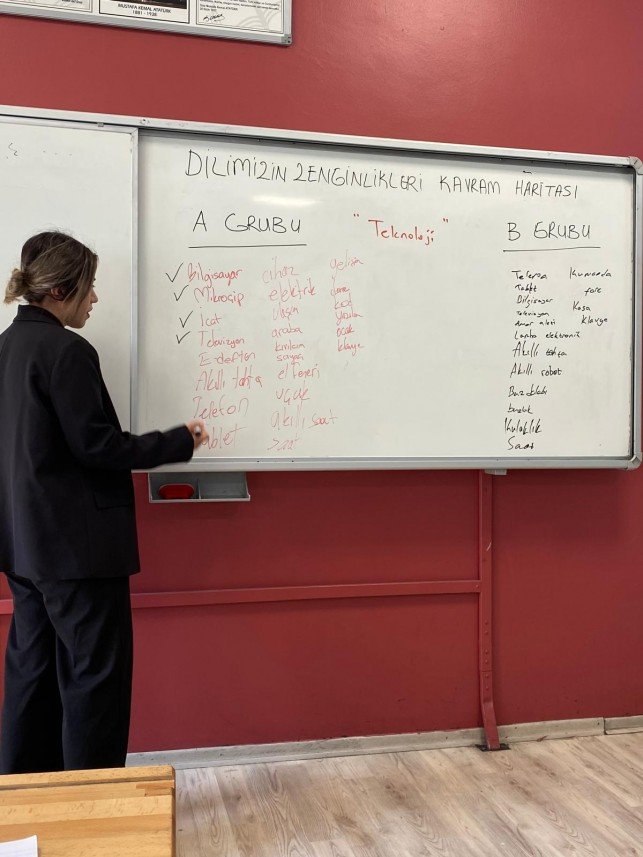 MUSTAFA KEMAL ATATÜRK
1881 - 1938
DİLİMİZİN ZENGİNLİKLERİ KAVRAM HARİTASI
A GRUBU
"Teknoloji"
B GRUBU
Bilgisayar
Mikroçip
İcat
Televizyon
E-defter
Akıllı tahta
Telefon
ablet
cihaz
elektrik
ulaşım
araba
kıvılcım
sanayi
el feneri
uçak
akıllı saat
saat
gelişim
kod
ocak
klavye
Telefon
Tablet
Bilgisayar
Televizyon
Lamba elektronik
Akıllı tahta
Akıllı robot
Buzdolabı
Kulaklık
Saat
Kumanda
fare
Kasa
klavye